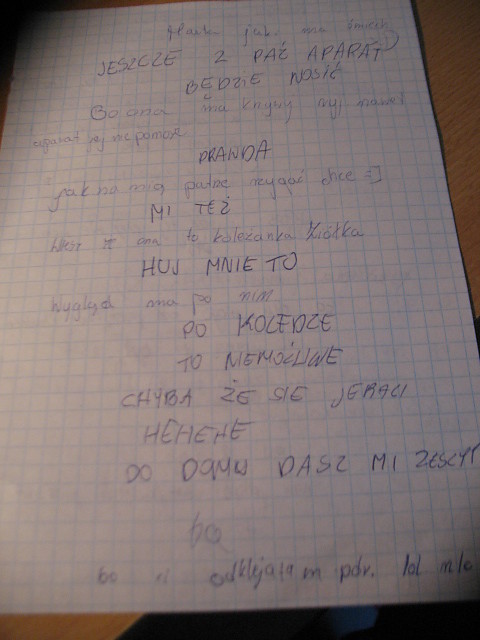 jak ma śmiech
JESZCZE 2 PAŹ APARAT
BĘDZIE NOSIĆ
Bo ona ma krzywy ryj nawet
aparat jej nie pomoże
PRAWDA
jak na nią patrzę rzygać chce =]
MI TEŻ
Wiesz że ona to koleżanka Ziółka
HUJ MNIE TO
Wygląd ma po nim
PO KOLEDZE
TO NIEMOŻLIWE
CHYBA ŻE SIE
HEHEHE
DO DOMU DASZ MI ZESZYT
bo
bo ci odklejałam pdr. lol